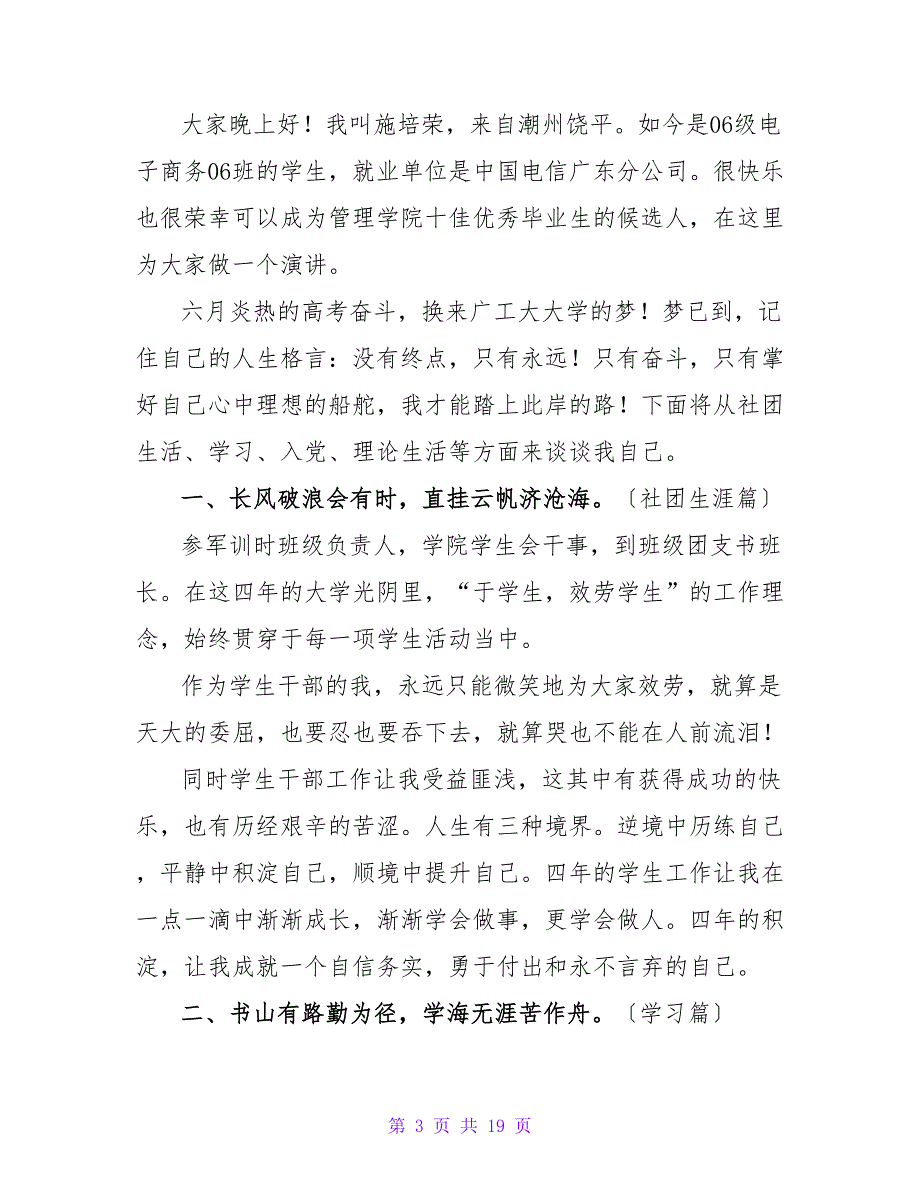 大家晚上好！我叫施培荣，来自潮州饶平。如今是06级电
子商务06班的学生，就业单位是中国电信广东分公司。很快乐
也很荣幸可以成为管理学院十佳优秀毕业生的候选人，在这里
为大家做一个演讲。
六月炎热的高考奋斗，换来广工大大学的梦！梦已到，记
住自己的人生格言：没有终点，只有永远！只有奋斗，只有掌
好自己心中理想的船舵，我才能踏上此岸的路！下面将从社团
生活、学习、入党、理论生活等方面来谈谈我自己。
一、长风破浪会有时，直挂云帆济沧海。〔社团生涯篇〕
参军训时班级负责人，学院学生会干事，到班级团支书班
长。在这四年的大学光阴里，“于学生，效劳学生”的工作理
念，始终贯穿于每一项学生活动当中。
作为学生干部的我，永远只能微笑地为大家效劳，就算是
天大的委屈，也要忍也要吞下去，就算哭也不能在人前流泪！
同时学生干部工作让我受益匪浅，这其中有获得成功的快
乐，也有历经艰辛的苦涩。人生有三种境界。逆境中历练自己
，平静中积淀自己，顺境中提升自己。四年的学生工作让我在
一点一滴中渐渐成长，渐渐学会做事，更学会做人。四年的积
淀，让我成就一个自信务实，勇于付出和永不言弃的自己。
二、书山有路勤为径，学海无涯苦作舟。〔学习篇〕
第 3 页 共 19 页